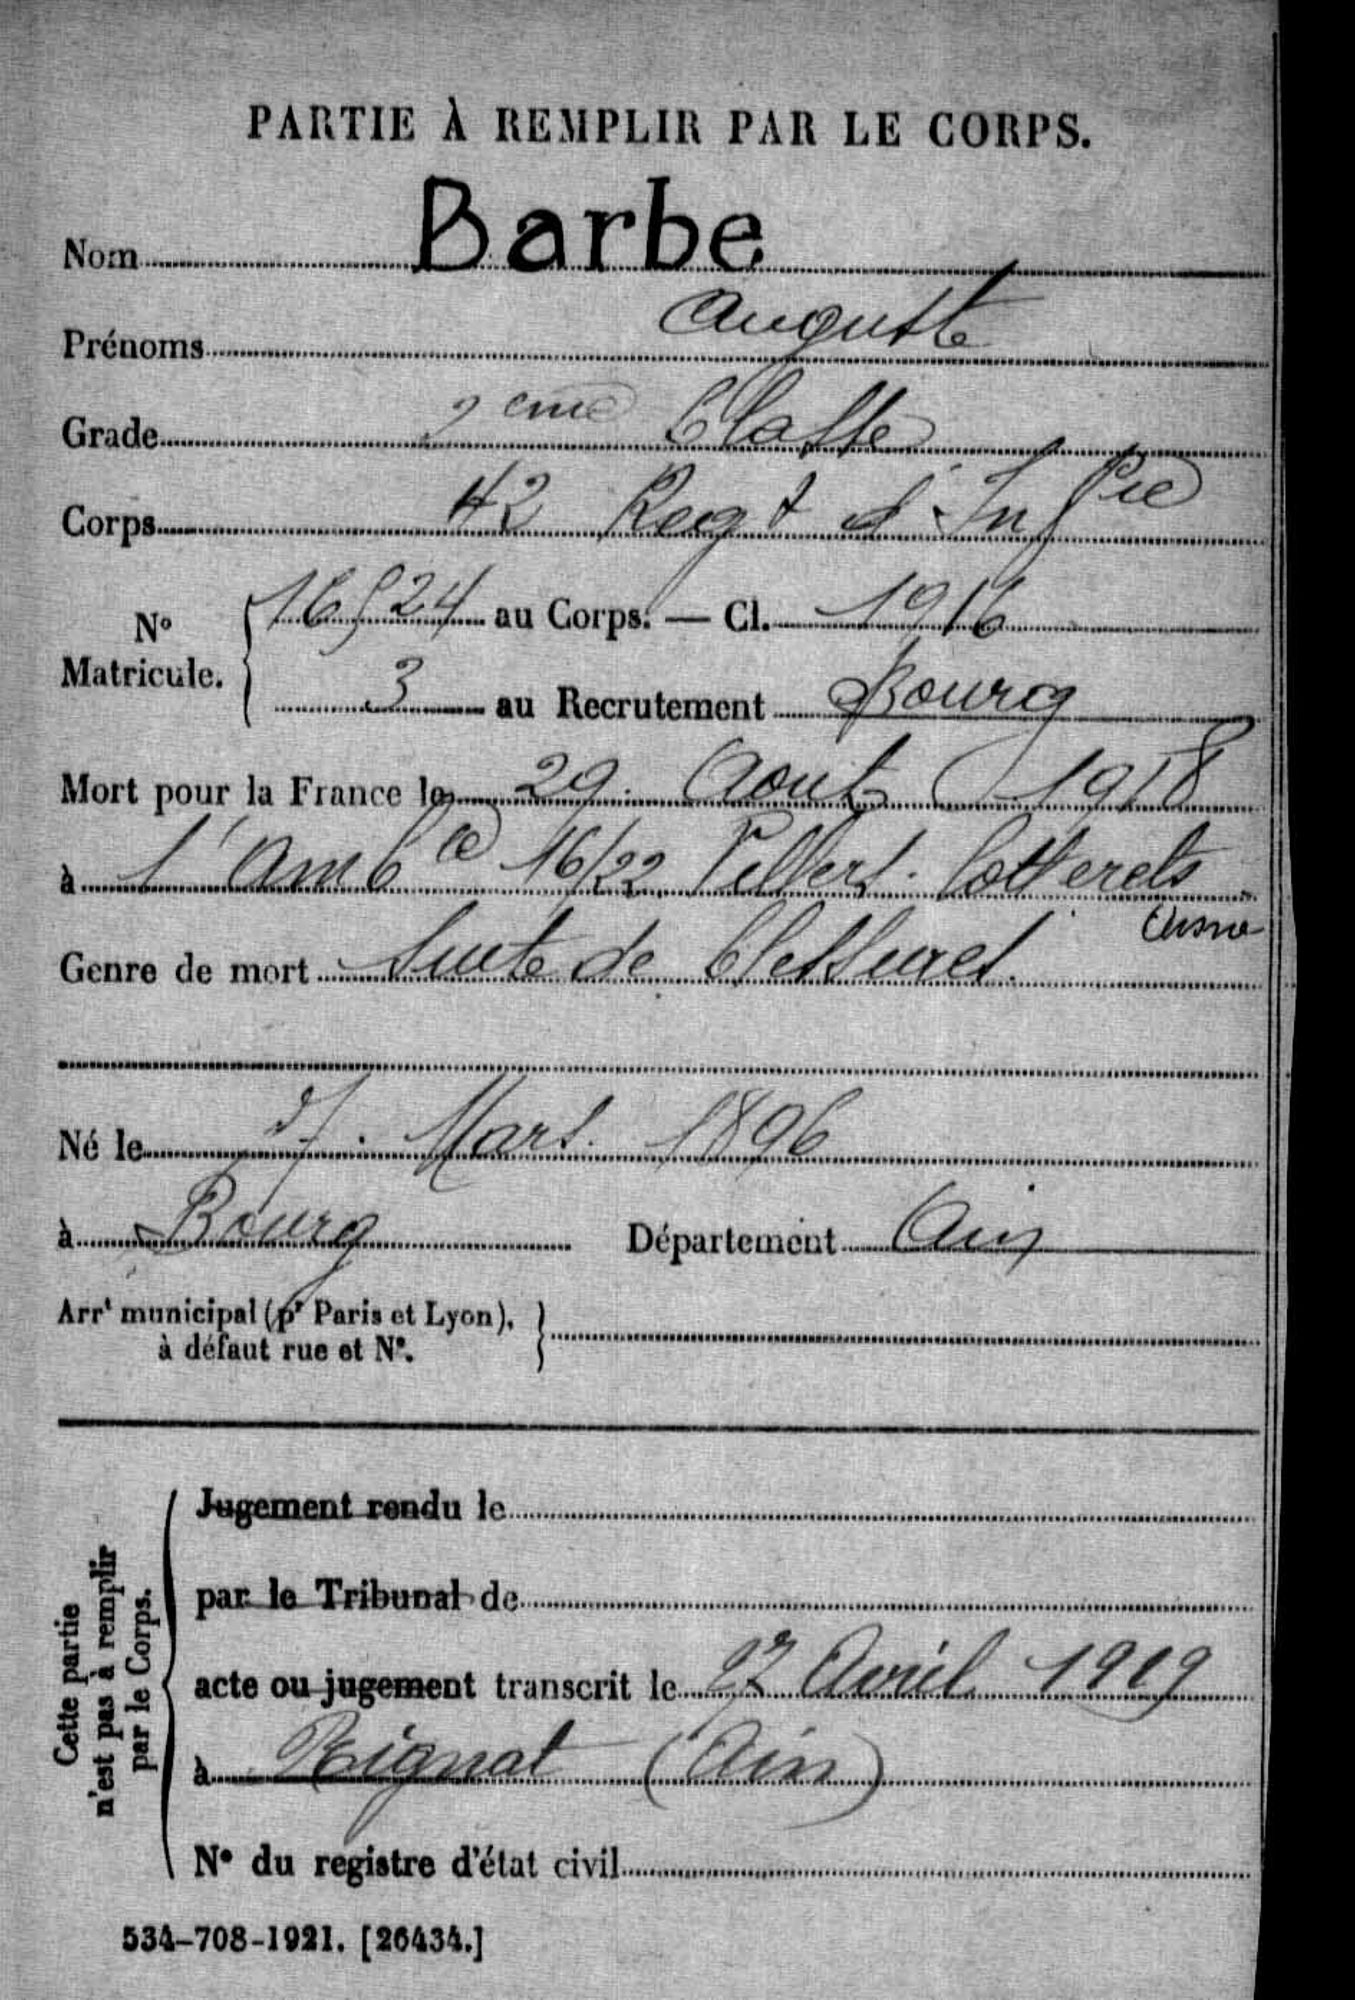 PARTIE À REMPLIR PAR LE CORPS.
Nom Barbe
Prénoms Auguste
Grade 2 eme Classe
Corps 42 Regt d'Inf rie
N° Matricule. 16524 au Corps. — Cl. 1916
3 au Recrutement Bourg
Mort pour la France le 29 Aout 1918
à l'Amb ce 16/22 Villers. Cotterets
Aisne
Genre de mort Suite de blessures.
Né le 7 Mars 1896
à Bourg Département Ain
Arrt municipal (pr Paris et Lyon),
à défaut rue et N°.
Cette partie
n'est pas à remplir
par le Corps.
Jugement rendu le
par le Tribunal de
acte ou jugement transcrit le 27 Avril 1919
à Rignat (Ain)
N° du registre d'état civil
534-708-1921. [26434.]